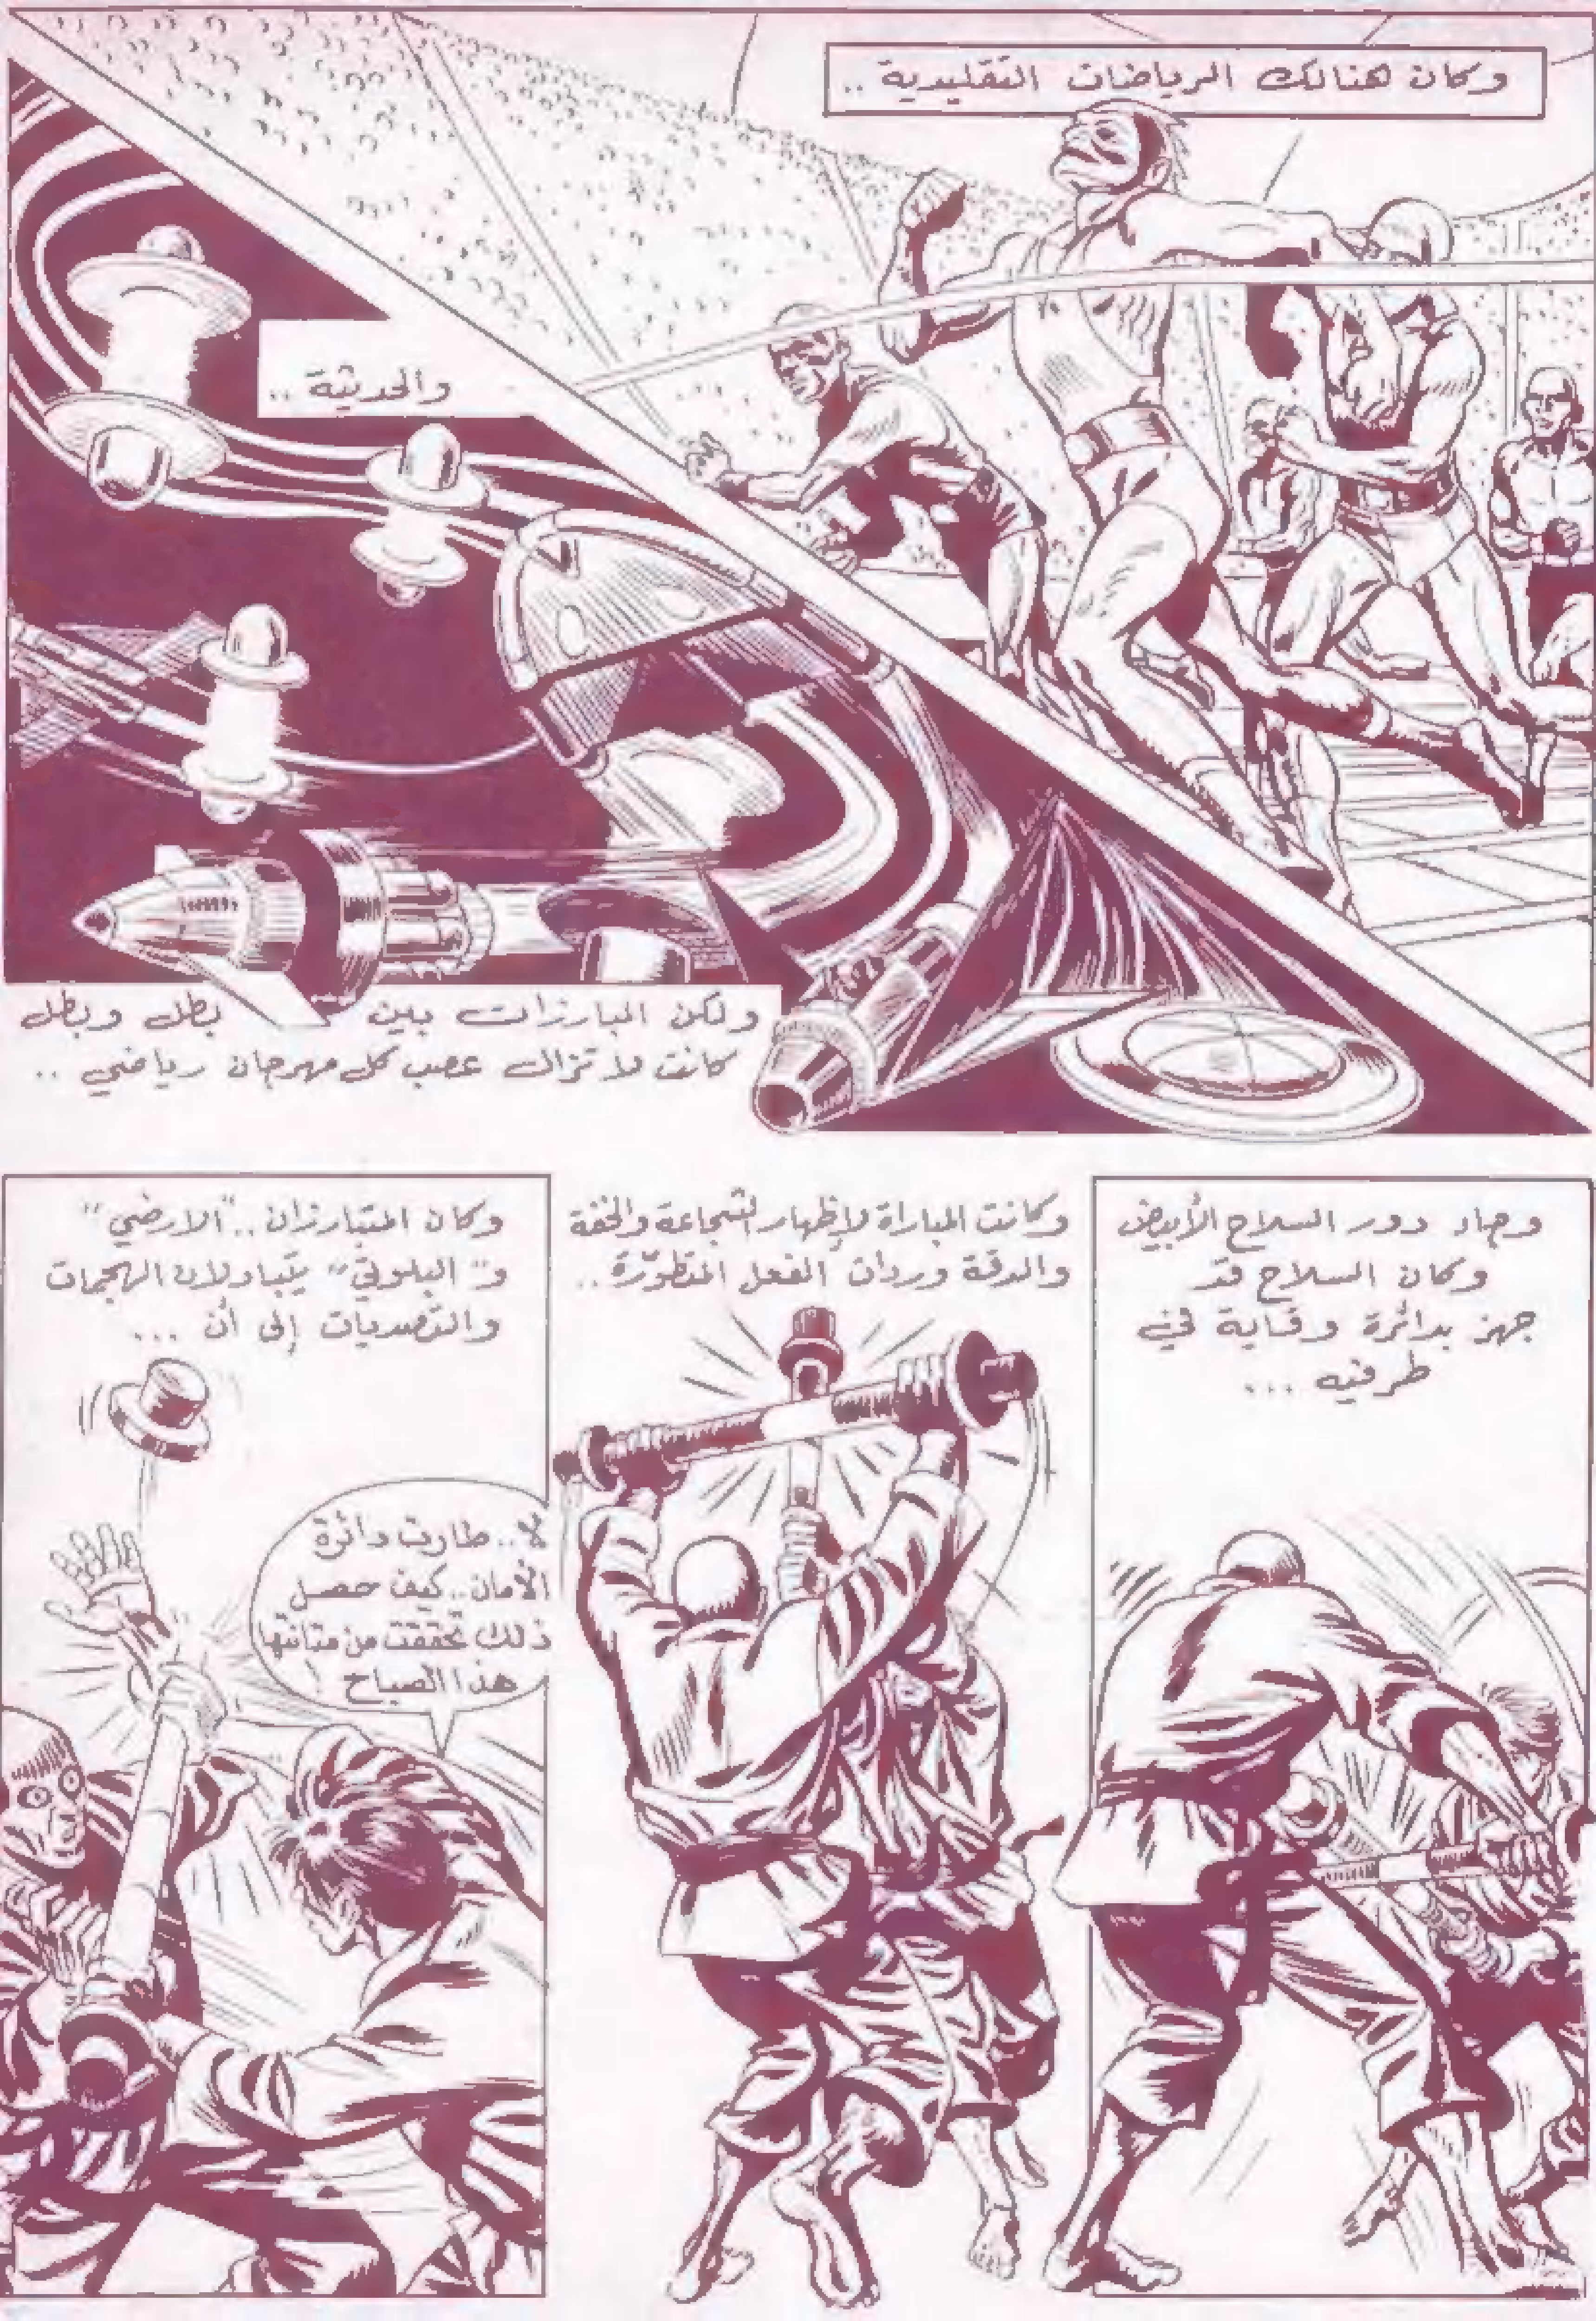 وكان هنالك الرياضات التقليدية ..
والحديثة ..
ولكن المبارزات بين بطل وبطل
كانت لا تزال عصب كل مهرجان رياضي ..
وجاء دور السلاح الأبيض
وكان السلاح قد
جهز بدائرة وقاية في
طرفيه ...
وكانت المباراة لإظهار الشجاعة والخفة
والدقة وردات الفعل المتطوّرة ..
وكان المتبارزان .. "الارضي"
و"البلوتي" يتبادلان الهجمات
والتصديات إلى أن ...
لا .. طارت دائرة
الأمان .. كيف حصل
ذلك تحققت من متانتها
هذا الصباح !